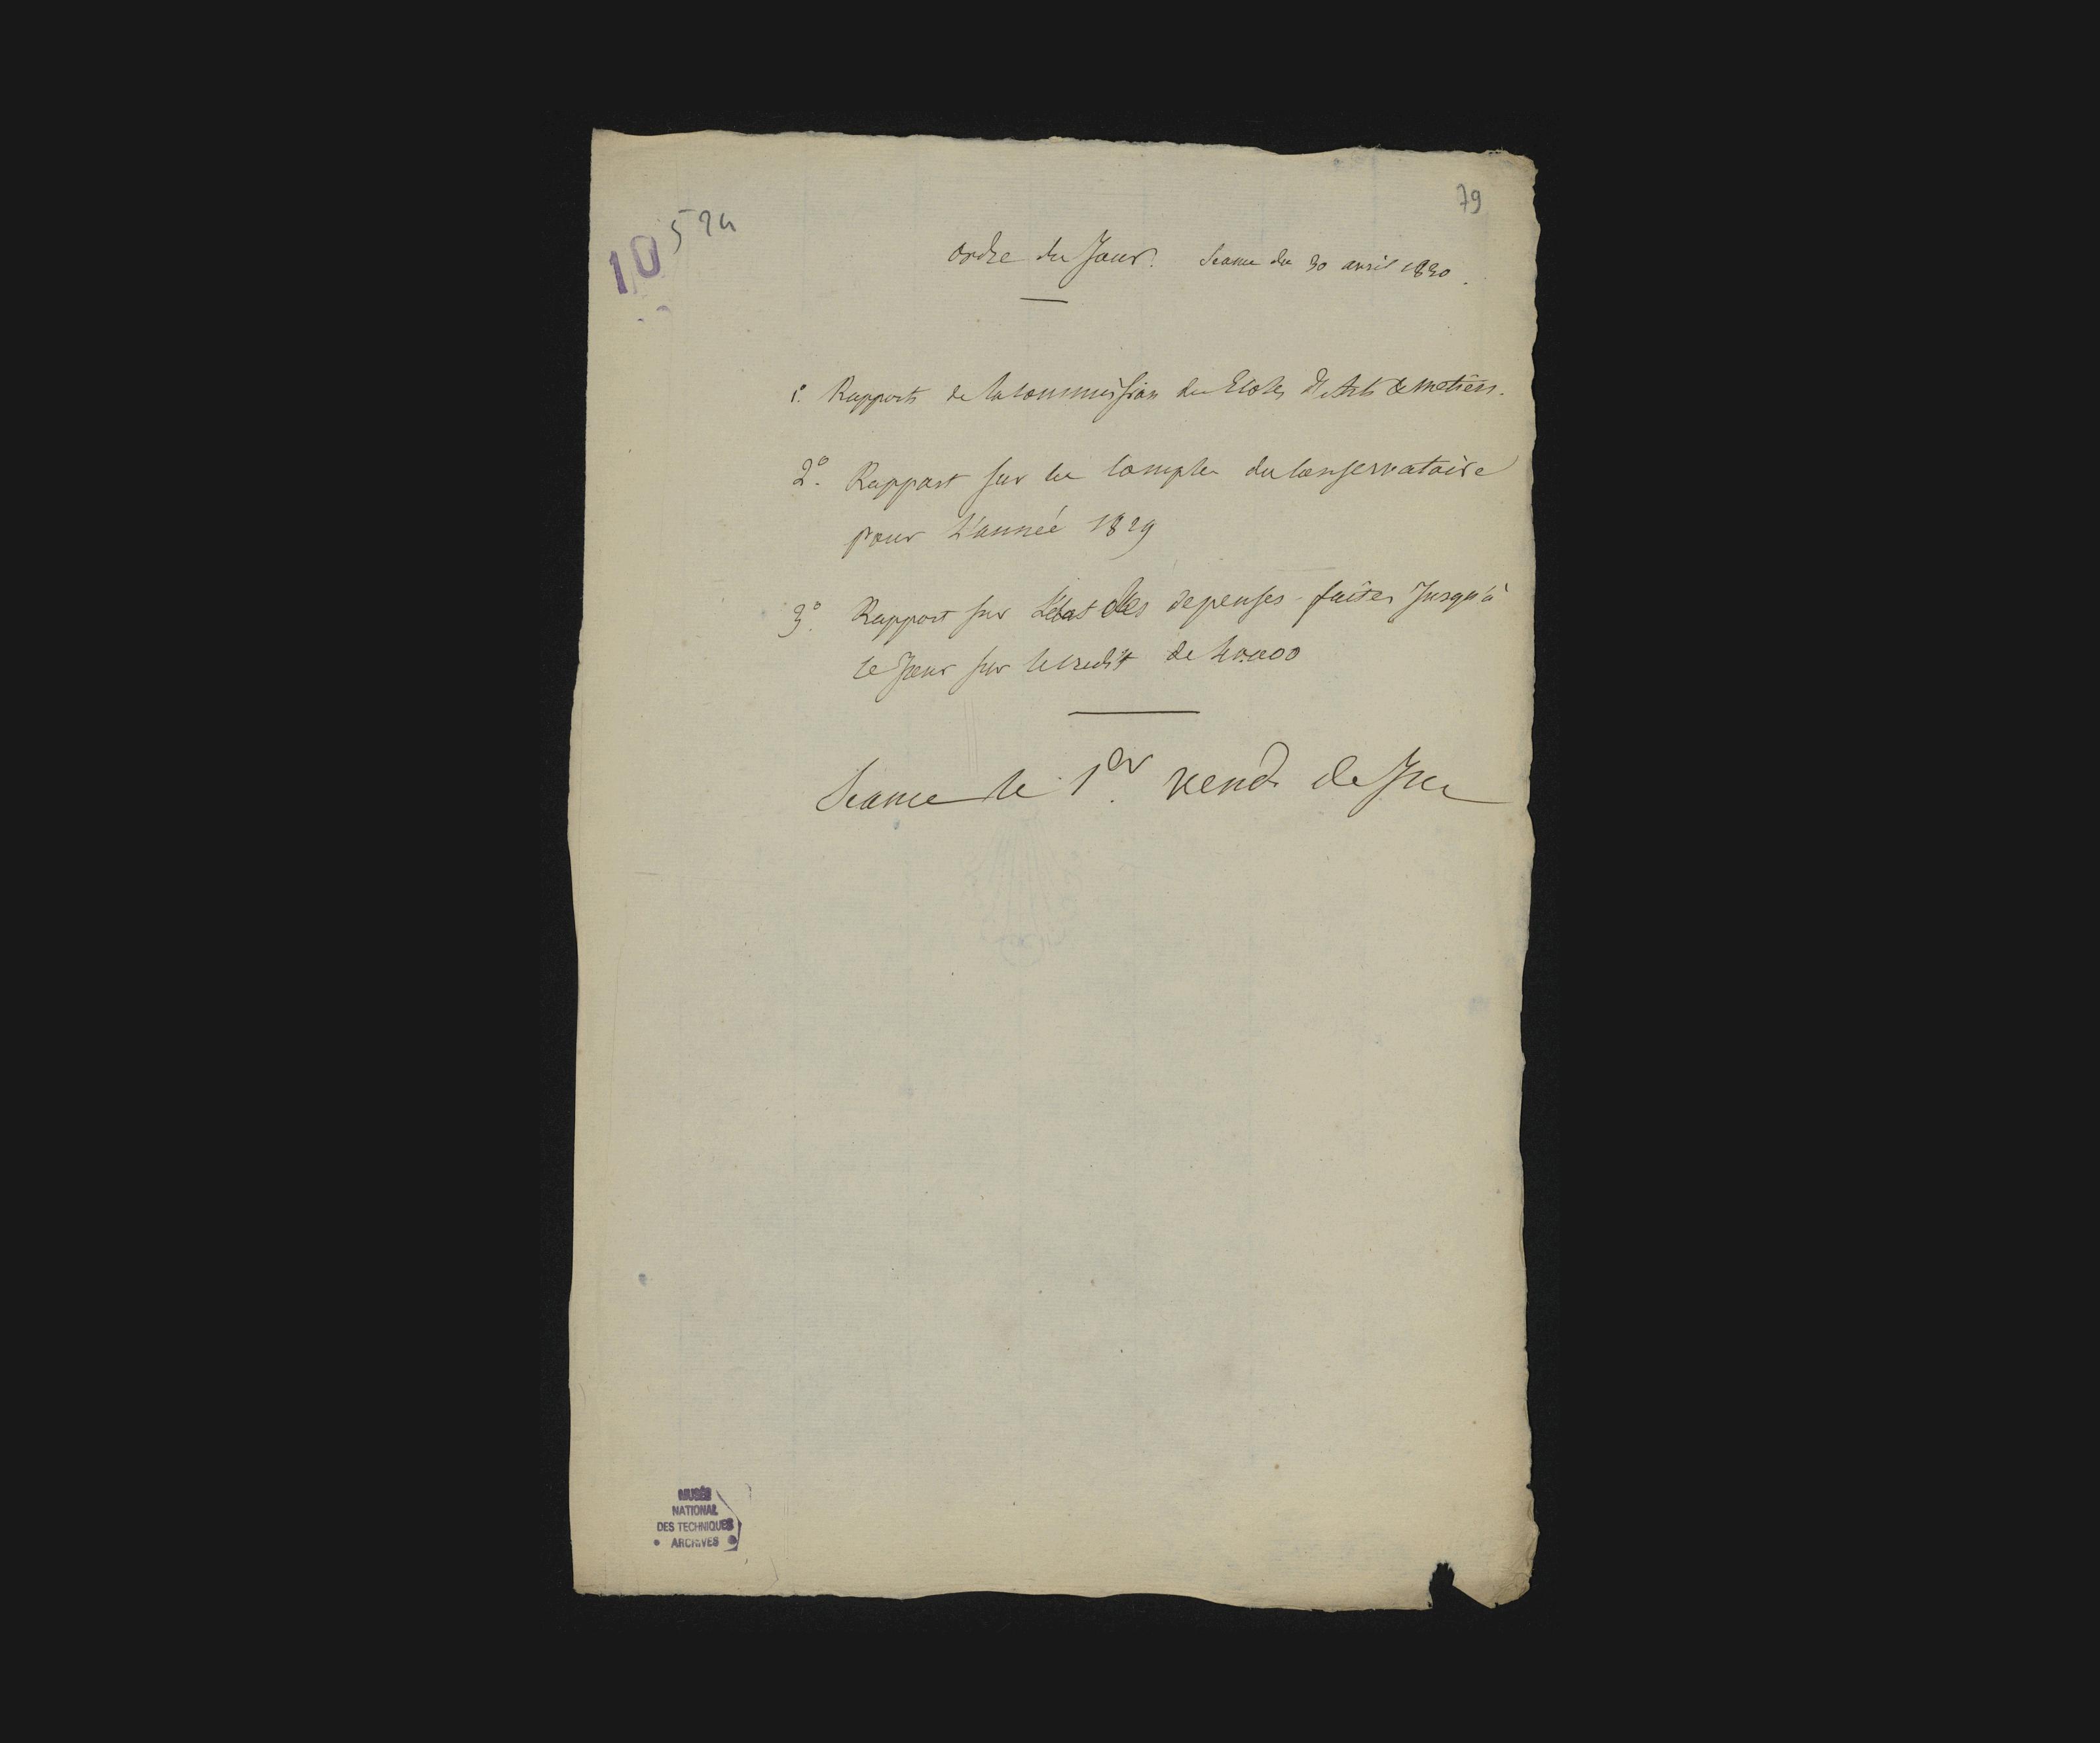 79
10 524
ordre du Jour. Seance du 30 avril 1830.
1.º Rapports de la commission des Ecoles d'Arts & metiers.
2.º Rapport sur les comptes du conservatoire
pour L'année 1829
3.º Rapport sur L'état des depenses faites Jusqu'à
ce Jour sur le credit de 40.000
Seance le 1.er vend. de
MUSÉE
NATIONAL
DES TECHNIQUES
ARCHIVES